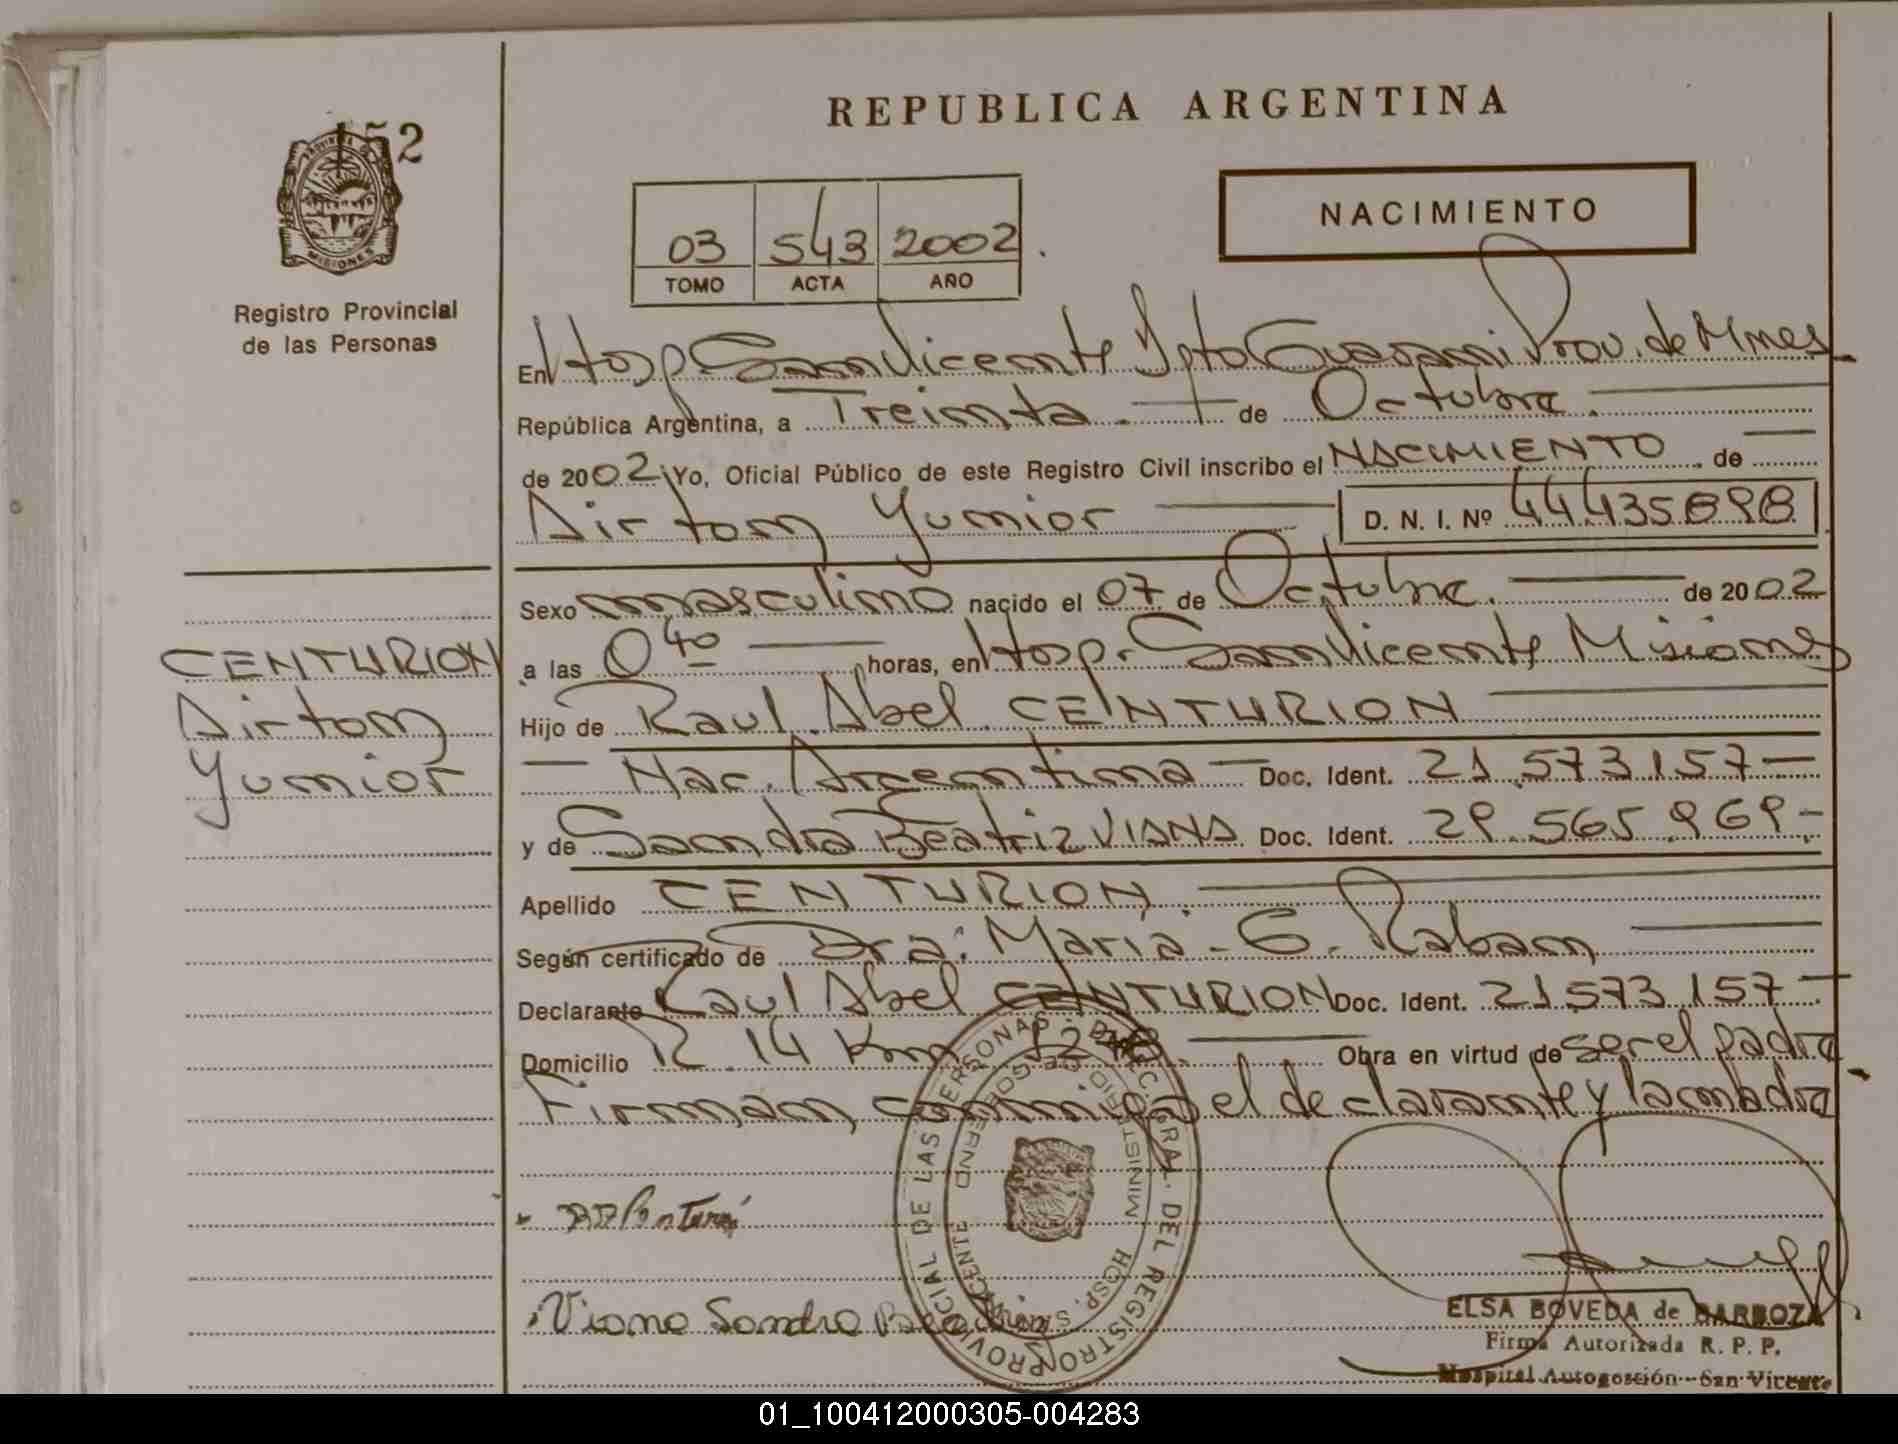 152
REPUBLICA ARGENTINA
PROVINCIA DE MISIONES
Registro Provincial
de las Personas
03 543 2002
TOMO ACTA AÑO
NACIMIENTO
En Hosp San Vicente Dpto Guarani Prov. de Mnes
República Argentina, a Treinta. de Octubre.
de 2002 Yo, Oficial Público de este Registro Civil inscribo el NACIMIENTO de
Airton Yunior D. N. I. Nº 44435898
Sexo masculino nacido el 07 de Octubre. de 2002
a las 0 40 horas, en Hosp. San Vicente Misiones
Hijo de Raul Abel CENTURION
Nac. Argentina Doc. Ident. 21.573.157
y de Sandra Beatriz VIANA Doc. Ident. 29.565.969
Apellido CENTURION.
Según certificado de Dra. Maria G. Raban
Declarante Raul Abel CENTURION Doc. Ident. 21573.157
Domicilio R. 14 Km Obra en virtud de ser el padre
Firman conmigo el declarante y la madre
CENTURION
Airton
Yunior
Viana Sandra Beatriz
REGISTRO PROVINCIAL DE LAS PERSONAS
MINISTERIO DE GOBIERNO
HOSP. SAN VICENTE
ELSA BOVEDA de BARBOZA
Firma Autorizada R. P. P.
Hospital Autogestión - San Vicente
01_100412000305-004283